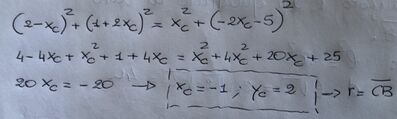 (2-x_c)² + (1+2x_c)² = x_c² + (-2x_c-5)²
4-4x_c+x_c²+1+4x_c = x_c²+4x_c²+20x_c+25
20x_c = -20 → x_c=-1 ; y_c=2 → r = C̅B̅